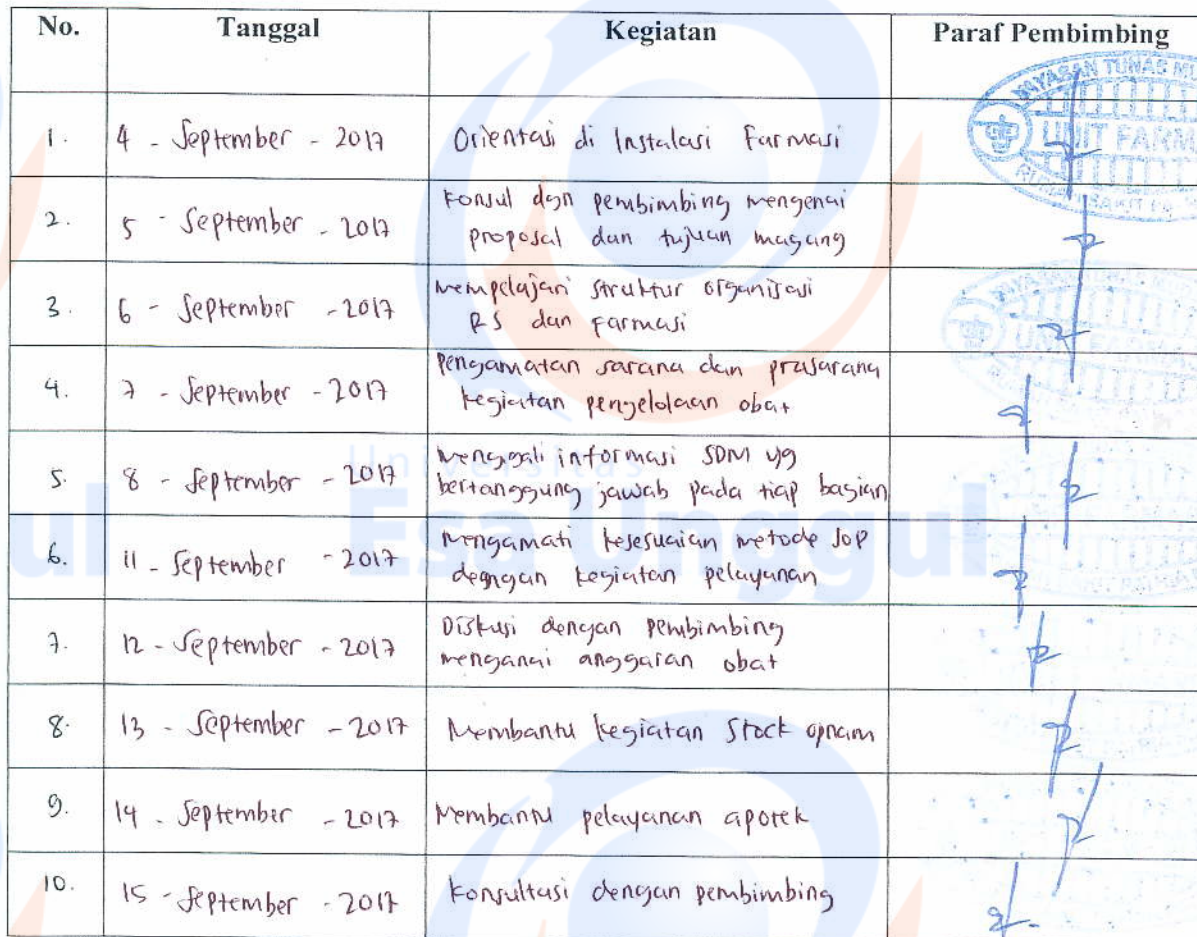 No. Tanggal Kegiatan Paraf Pembimbing
YAYASAN TUNAS MU
UNIT FARM
1. 4 - September - 2017 Orientasi di Instalasi Farmasi
2. 5 - September - 2017 Konsul dgn pembimbing mengenai
proposal dan tujuan magang
3. 6 - September - 2017 Mempelajari struktur organisasi
RS dan Farmasi
4. 7 - September - 2017 Pengamatan sarana dan prasarana
kegiatan pengelolaan obat
Universitas
Esa Unggul
ul
5. 8 - September - 2017 Menggali informasi SDM yg
bertanggung jawab pada tiap bagian
6. 11 - September - 2017 Mengamati kesesuaian metode SOP
degngan kegiatan pelayanan
7. 12 - September - 2017 Diskusi dengan pembimbing
menganai anggaran obat
8. 13 - September - 2017 Membantu kegiatan Stock opnam
9. 14 - September - 2017 Membantu pelayanan apotek
10. 15 - September - 2017 Konsultasi dengan pembimbing